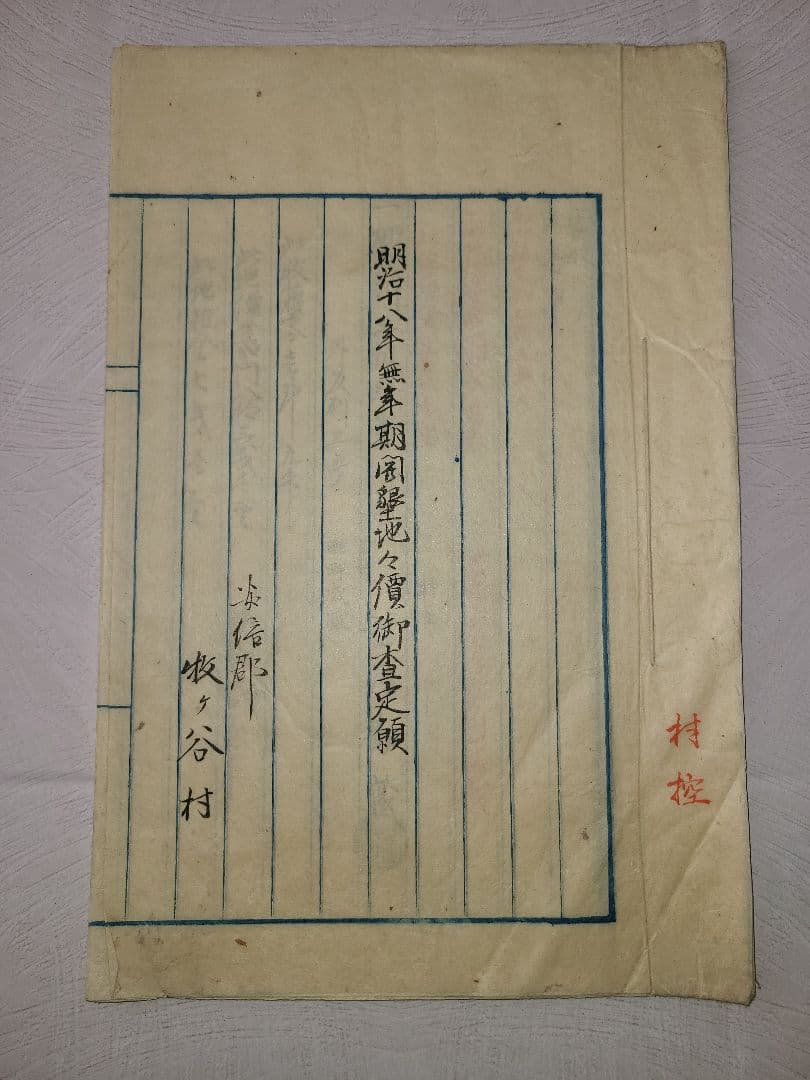 村控
明治十八年無年期開墾地々價御查定願
安倍郡
牧ヶ谷村